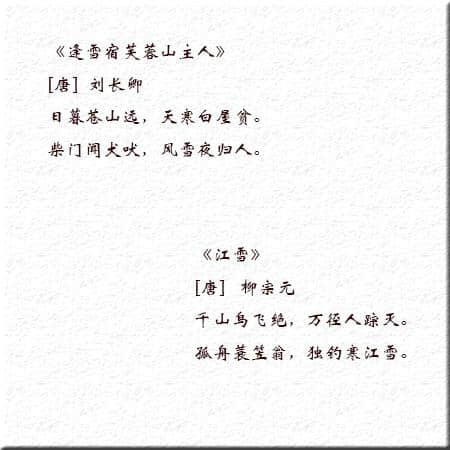 《逢雪宿芙蓉山主人》
[唐] 刘长卿
日暮苍山远，天寒白屋贫。
柴门闻犬吠，风雪夜归人。
《江雪》
[唐] 柳宗元
千山鸟飞绝，万径人踪灭。
孤舟蓑笠翁，独钓寒江雪。